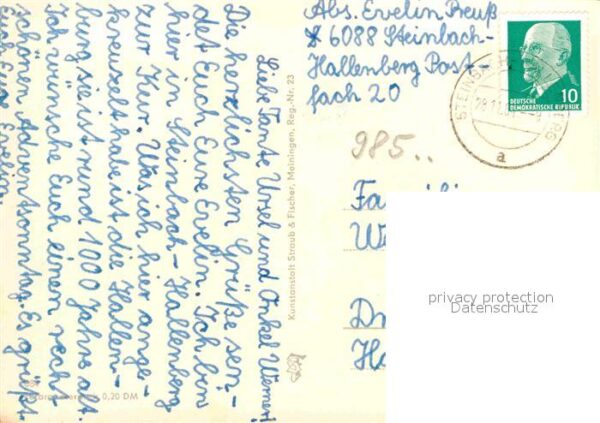 Abs. Evelin Preuß
6088 Steinbach-
Hallenberg Post-
fach 20
DEUTSCHE
DEMOKRATISCHE REPUBLIK
10
985..
a
Liebe Tante Ursel und Onkel Werner!
Die herzlichsten Grüße sen-
det Euch Eure Evelin. Ich bin
hier in Steinbach-Hallenberg
zur Kur. Was ich hier ange-
kreuzelt habe ist die Hallen-
burg sie ist rund 1000 Jahre alt.
Ich wünsche Euch einen recht
schönen Adventssonntag. Es grüßt
Euch Eure Evelin
Kunstanstalt Straub & Fischer, Meiningen, Reg.-Nr. 23
0,20 DM
privacy protection
Datenschutz